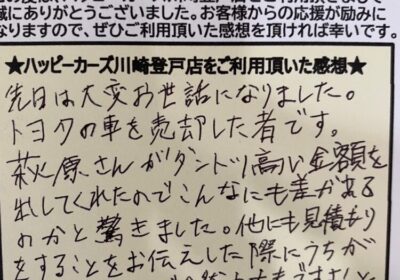 誠にありがとうございました。お客様からの応援が励みに
なりますので、ぜひご利用頂いた感想を頂ければ幸いです。
★ハッピーカーズ川崎登戸店をご利用頂いた感想★
先日は大変お世話になりました。
トヨタの車を売却した者です。
萩原さんがダントツ高い金額を
出してくれたのでこんなにも差がある
のかと驚きました。他にも見積もり
をすることをお伝えした際にうちが